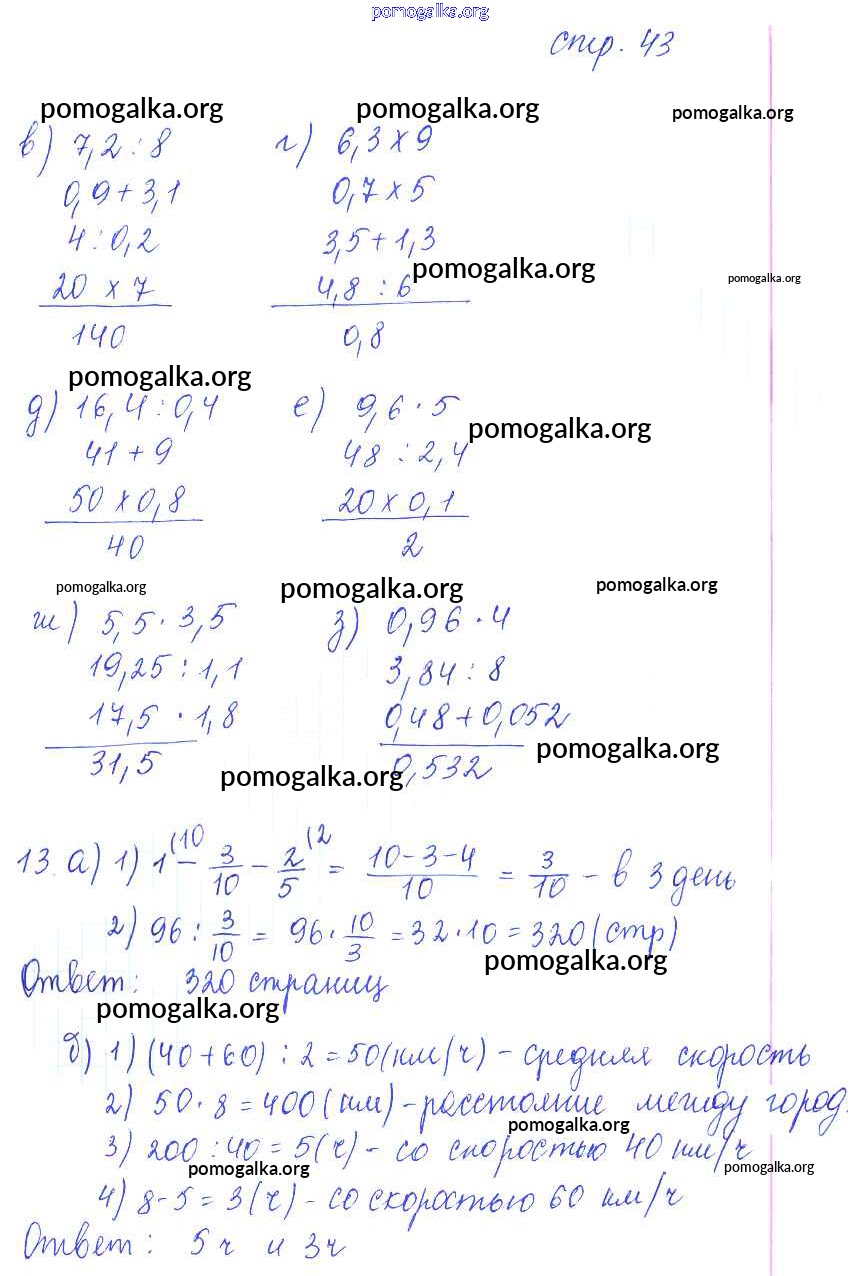 pomogalka.org
стр. 43
pomogalka.org pomogalka.org pomogalka.org
в) 7,2 : 8
0,9 + 3,1
4 : 0,2
20 x 7
140
г) 6,3 x 9
0,7 x 5
3,5 + 1,3
4,8 : 6
0,8
pomogalka.org
pomogalka.org
pomogalka.org
д) 16,4 : 0,4
41 + 9
50 x 0,8
40
е) 9,6 · 5
48 : 2,4
20 x 0,1
2
pomogalka.org
pomogalka.org pomogalka.org pomogalka.org
ж) 5,5 · 3,5
19,25 : 1,1
17,5 · 1,8
31,5
з) 0,96 · 4
3,84 : 8
0,48 + 0,052
0,532
pomogalka.org
pomogalka.org
13. а) 1) 1(10 − 3/10 − 2/5(2 = 10-3-4/10 = 3/10 - в 3 день
2) 96 : 3/10 = 96 · 10/3 = 32 · 10 = 320 (стр)
pomogalka.org
Ответ: 320 страниц
pomogalka.org
б) 1) (40 + 60) : 2 = 50 (км/ч) - средняя скорость
2) 50 · 8 = 400 (км) - расстояние между город.
pomogalka.org
3) 200 : 40 = 5 (ч) - со скоростью 40 км/ч
pomogalka.org pomogalka.org
4) 8 - 5 = 3 (ч) - со скоростью 60 км/ч
Ответ: 5 ч и 3 ч